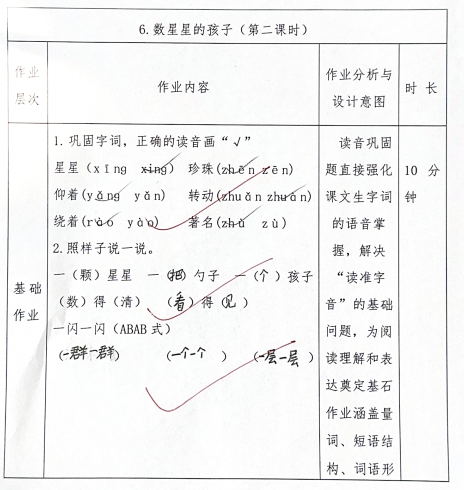 6.数星星的孩子（第二课时）
作业层次
作业内容
作业分析与设计意图
时 长
1.巩固字词，正确的读音画“√”
星星（xīng xing） 珍珠(zhēn zēn)
仰着(yǎng yǎn) 转动(zhuǎn zhuán)
绕着(rào yào) 著名(zhù zù)
2.照样子说一说。
一（颗）星星 一（把）勺子 一（个）孩子
（数）得（清） （看）得（见）
一闪一闪（ABAB式）
（一群一群） （一个一个） （一层一层）
基础作业
读音巩固
题直接强化
课文生字词
的语音掌
握，解决
“读准字
音”的基础
问题，为阅
读理解和表
达奠定基石
作业涵盖量
词、短语结
构、词语形
10 分
钟